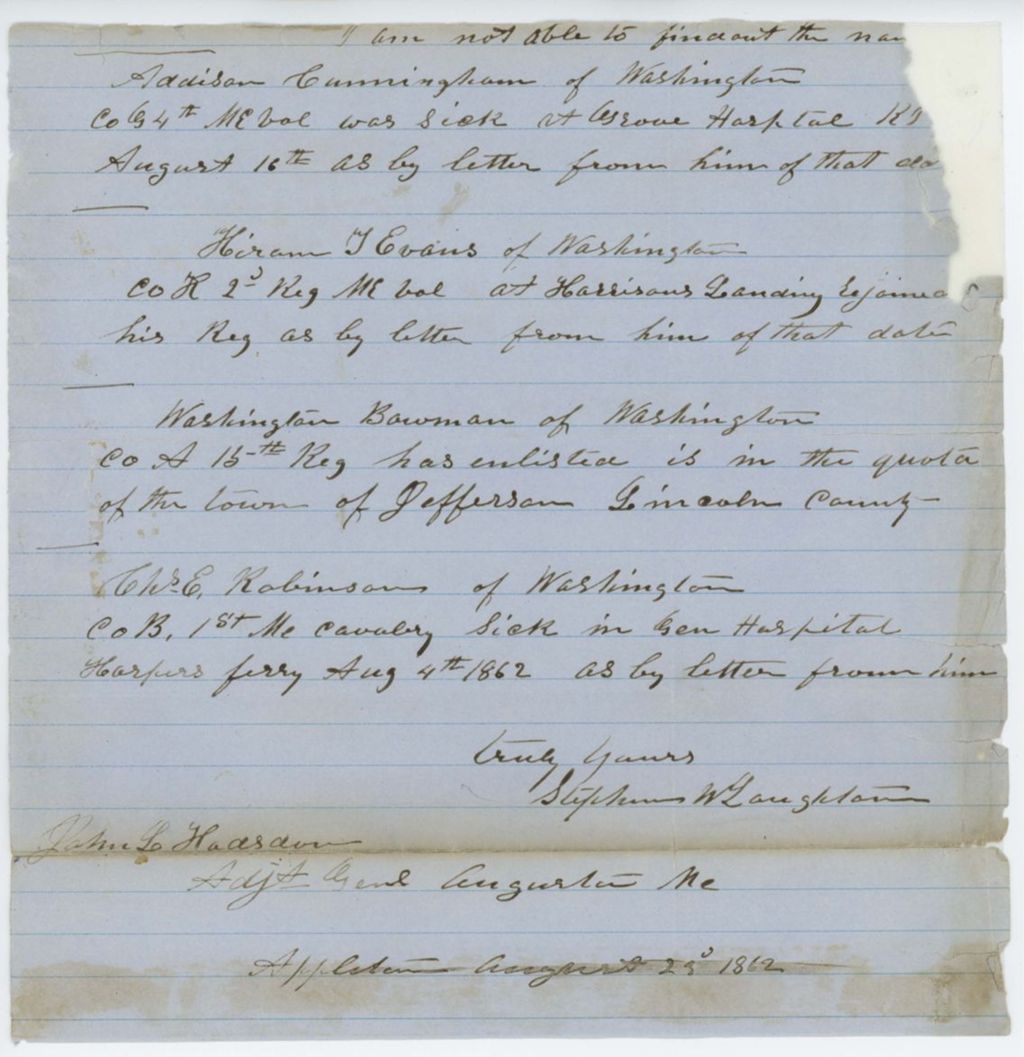 I am not able to findout the
Addison Cunningham of Washington
Co G 4th ME vol was Sick at Hospital
August 16th as by letter from him of that
Hiram T Evans of Washington
Co K 2d Reg ME vol at Harrisons Landing
his Reg as by letter from him of that date
Washington Bowman of Washington
Co A 15th Reg has enlisted is in the quota
of the town of Jefferson Lincoln County
Chs E, Robinson of Washington
Co B, 1st Me cavalry Sick in Gen Hospital
Harpers ferry Aug 4th 1862 as by letter from him
truly yours
Stephen W Laughton
John L Hodsdon
Adjt Genl Augusta Me
Appleton August 23d 1862